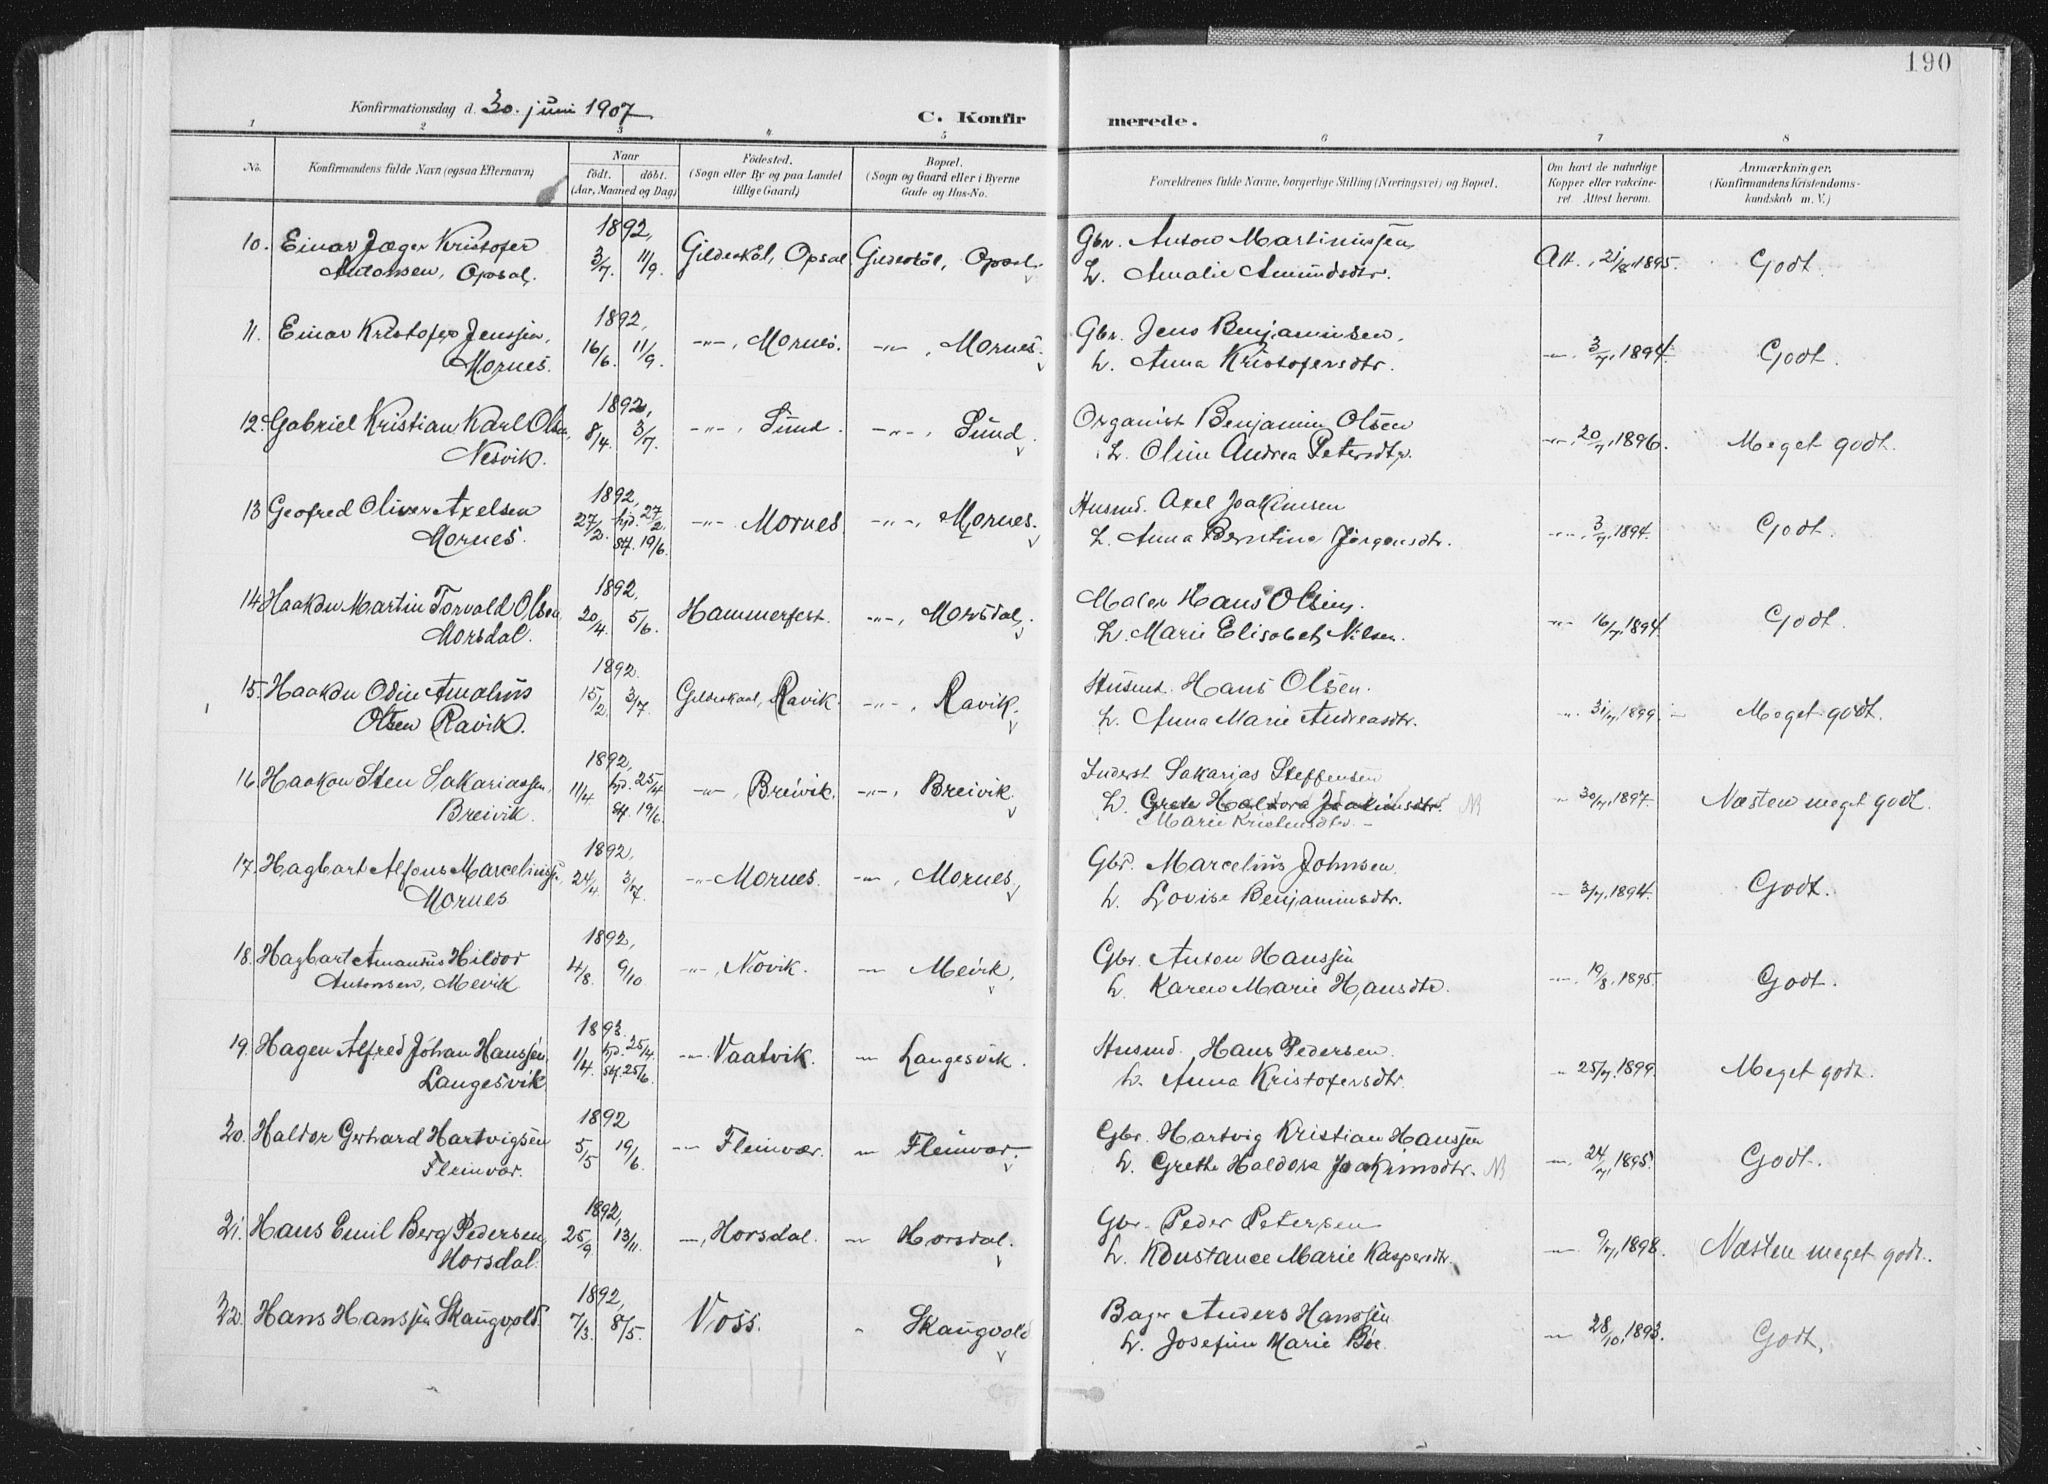 190
Konfirmationsdag d. 30. juni 1907
C. Konfirmerede.
1 2 3 4 5 6 7 8
No. Konfirmandens fulde Navn (ogsaa Efternavn) Naar født. døbt. (Aar, Maaned og Dag) Fødested. (Sogn eller By og paa Landet tillige Gaard) Bopæl. (Sogn og Gaard eller i Byerne Gade og Hus-No. Forældrenes fulde Navne, borgerlige Stilling (Næringsvei) og Bopæl. Om havt de naturlige Kopper eller vakcineret. Attest herom. Anmærkninger. (Konfirmandens Kristendomskundskab m. V.)
1892,
10. Einar Jæger Kristofer 3/7. 11/9. Gildeskål, Opsal Gildeskål, Opsal. Gbr. Anton Martinussen Att. 21/8.1895. Godt.
Antonsen, Opsal. H. Amalie Amundsdtr.
1892,
11. Einar Kristofer Jenssen, 16/6. 11/9. -"-, Mornes. -"-, Mornes. Gbr. Jens Benjaminsen. -"-, 3/7, 1894. Godt.
Mornes. H. Anna Kristofersdtr.
1892,
12. Gabriel Kristian Karl Olsen, 8/4. 3/7. -"-, Sund. -"-, Sund. Organist Benjamin Olsen -"-, 20/7, 1896. Meget godt.
Nesvik. H. Oline Andrea Petersdtr.
1892,
13 Geofred Oliver Axelsen 27/2. hjd. 27/2. st. 19/6. -"- Mornes. -"-, Mornes. Husmd. Axel Joakimsen -"-, 3/7, 1894. Godt.
Mornes. H. Anna Berntine Jørgensdtr.
1892,
14. Haakon Martin Torvald Olsen, 20/4. 5/6. Hammerfest. -"-, Morsdal. Maler Hans Olsen, -"- 16/7, 1894. Godt.
Morsdal. H. Marie Elisabet Nilsen.
1892.
15. Haakon Odin Amalius 15/2. 3/7. Gildeskaal, Ravik. -"-, Ravik. Husmd. Hans Olsen. -"- 31/7, 1899. Meget godt.
Olsen Ravik. H. Anna Marie Andreasdtr.
1892,
16. Haakon Sten Sakariassen, 11/4 hjd. 25/4 st. 19/6. -"-, Breivik. -"-, Breivik. Inderst Sakarias Steffensen -"- 30/7, 1897. Næsten meget godt.
Breivik. H. Grete Haldora Joakimsdtr. NB
Marie Kristensdtr. -
1892,
17. Hagbart Alfons Marceliuss. 24/4 3/7. -"- Mornes. -"-, Mornes. Gbr. Marcelius Johnsen. -"- 3/7, 1894. Godt.
Mornes H. Lovise Benjaminsdtr.
1892,
18. Hagbart Amandus Hildor 4/8. 9/10 -"-, Novik. -"- Mevik. Gbr. Anton Hanssen -"-, 19/8, 1895. Godt.
Antonsen, Mevik H. Karen Marie Hansdtr.
1893.
19. Hagen Alfred Johan Hanssen, 1/4. hjd. 25/4. st. 25/6. -"- Vaatvik. -"- Langesvik. Husmd. Hans Pedersen. -"- 25/7, 1899. Meget godt.
Langesvik H. Anna Kristofersdtr.
1892
20. Haldor Gerhard Hartvigsen 5/5 19/6. -"- Fleinvær. -"- Fleinvær. Gbr. Hartvig Kristian Hanssen -"- 24/7, 1895. Godt.
Fleinvær. H. Grethe Haldora Joakimsdtr. NB
1892,
21. Hans Emil Berg Pedersen, 25/9 13/11. -"-, Horsdal. -"- Horsdal. Gbr. Peder Petersen -"- 9/7, 1898. Næsten meget godt.
Horsdal. H. Konstance Marie Kaspersdtr.
1892,
22. Hans Hanssen Skaugvold. 7/3. 8/5. Voss. " Skaugvold Bager Anders Hanssen -"- 28/10, 1893. Godt.
H. Josefine Marie Bøe